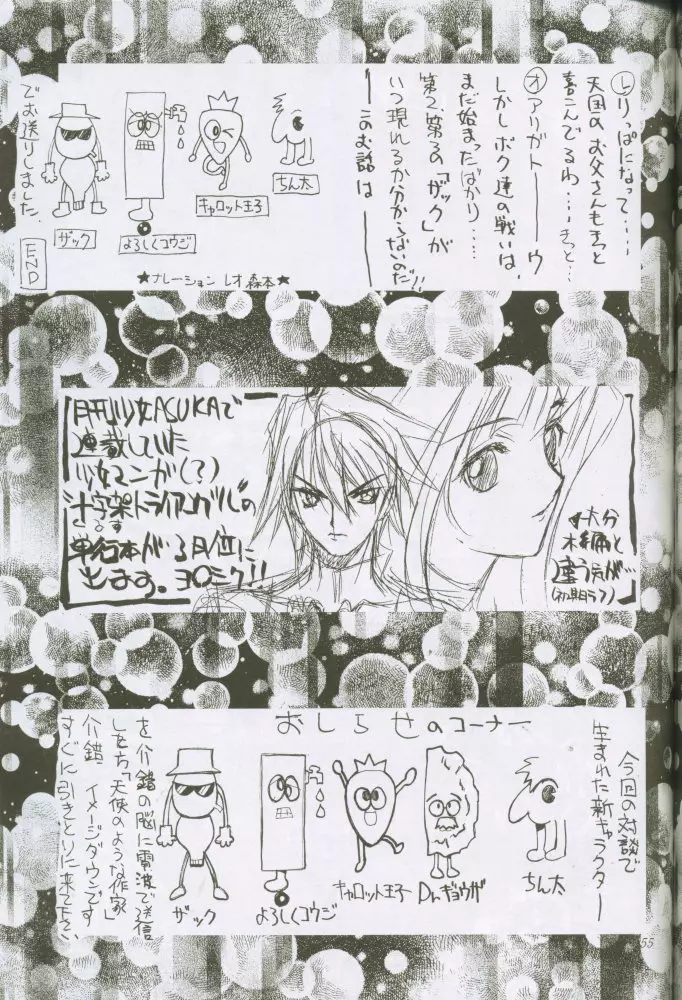 レりっぱになって……
天国のお父さんもきっと
喜こんでるわ…きっと…
オアリガトーーウ
しかしボク達の戦いは、
まだ始まったばかり…
第2、第3の「ザック」が
いつ現れるか分からないのだ!!
――このお話は――
ちん太
キャロット王子
よろしくコウジ
ザック
でお送りしました。
END
★ナレーション レオ森本★
月刊少女ASUKAで
連載していた
少女マンガ(?)
十字架トライアングルの
単行本が3月位に
出ます。ヨロシク!!
大分
本編と
違う気が…
(初期ラフ)
おしらせのコーナー
今回の対談で
生まれた新キャラクター
ちん太
Dr.ギョウザ
キャロット王子
よろしくコウジ
ザック
を介錯の脳に電波で送信
した方「天使のような作家
介錯」イメージダウンです
すぐに引きとりに来て下さい、
55